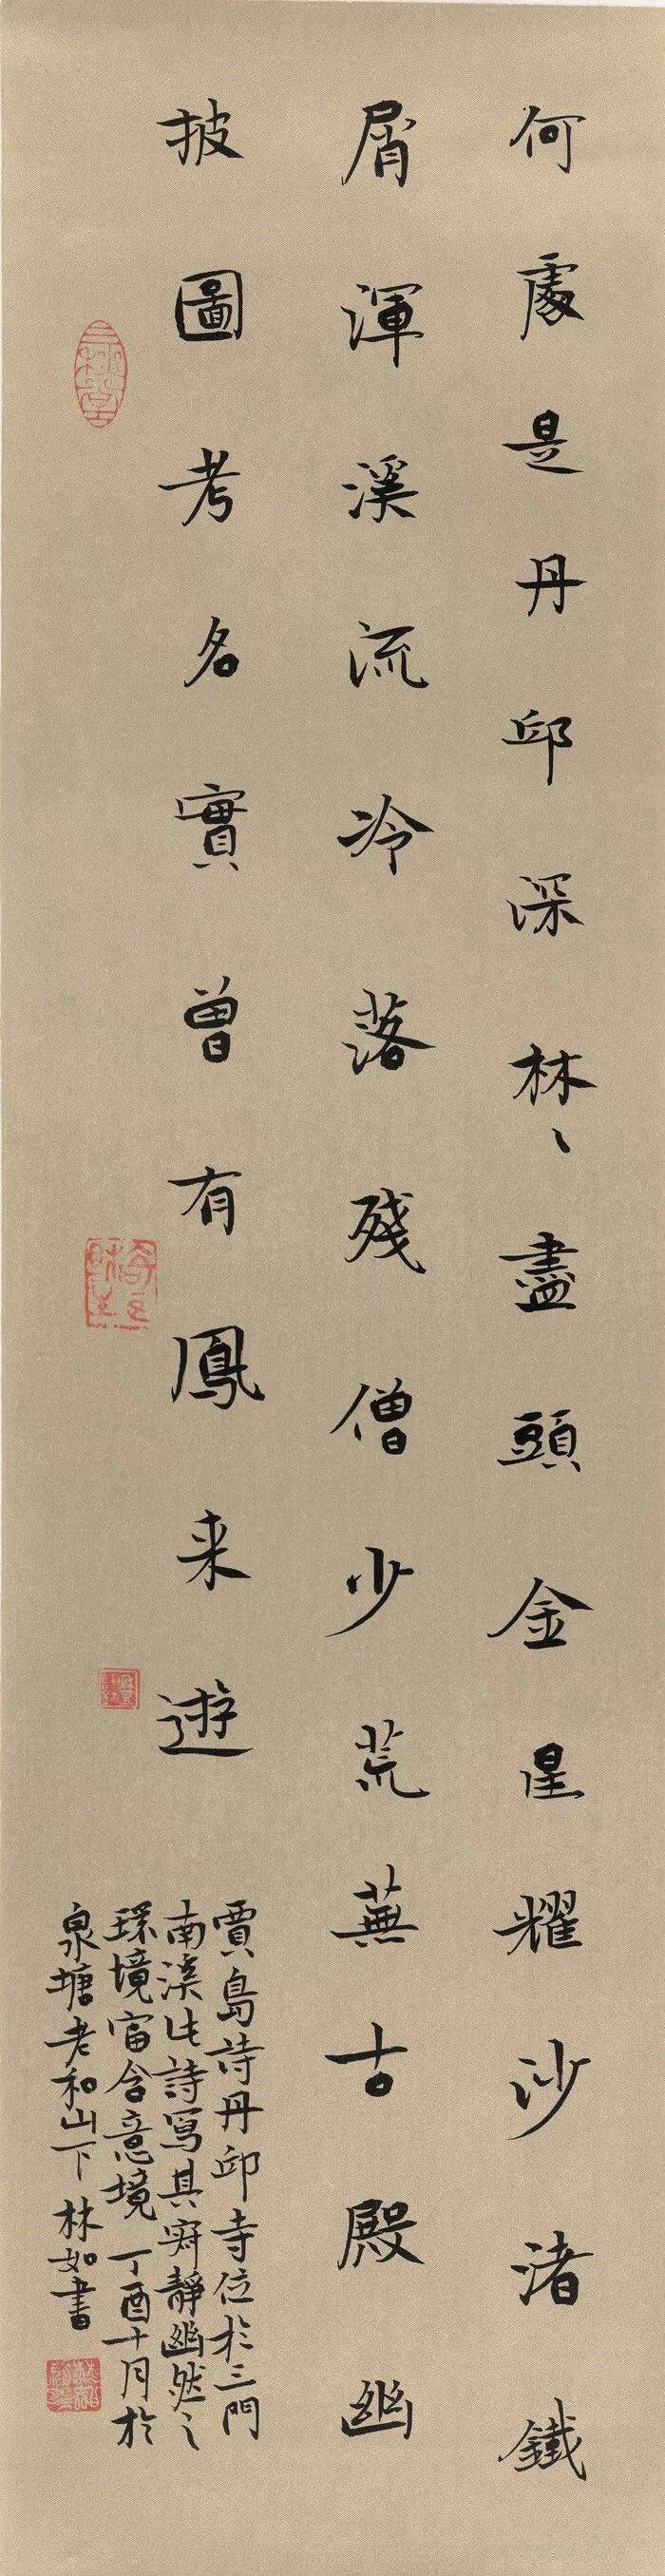 何處是丹邱深林〻盡頭金星耀沙渚鐵
屑渾溪流冷落殘僧少荒蕪古殿幽
披圖考名實曾有鳳来遊
賈島詩丹邱寺位於三門
南溪此詩寫其寂靜幽然之
環境富含意境 丁酉十月於
泉塘老和山下 林如書
三林堂